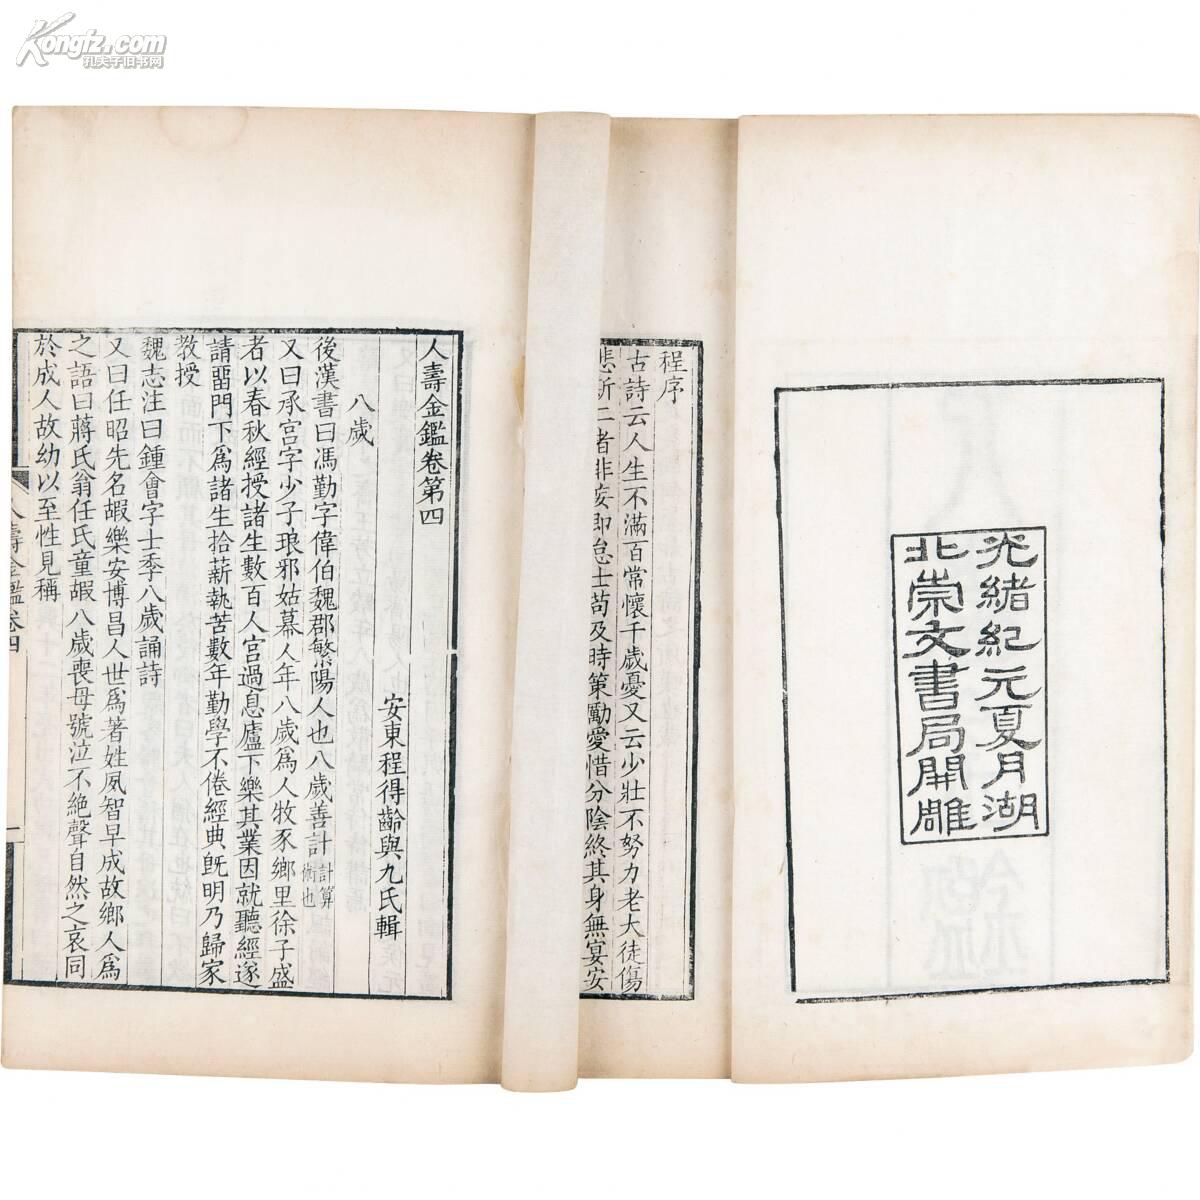 Kongfz.com
孔夫子旧书网
光緒紀元夏月湖
北崇文書局開雕
程序
古詩云人生不滿百常懷千歲憂又云少壯不努力老大徒傷
悲斯二者非妄即怠士苟及時策勵愛惜分陰終其身無宴安
人壽金鑑卷第四
安東程得齡與九氏輯
八歲
後漢書曰馮勤字偉伯魏郡繁陽人也八歲善計計算術也
又曰承宮字少子琅邪姑幕人年八歲爲人牧豕鄉里徐子盛
者以春秋經授諸生數百人宮過息廬下樂其業因就聽經遂
請畱門下爲諸生拾薪執苦數年勤學不倦經典旣明乃歸家
教授
魏志注曰鍾會字士季八歲誦詩
又曰任昭先名嘏樂安博昌人世爲著姓夙智早成故鄉人爲
之語曰蔣氏翁任氏童嘏八歲喪母號泣不絕聲自然之哀同
於成人故幼以至性見稱
人壽金鑑卷四